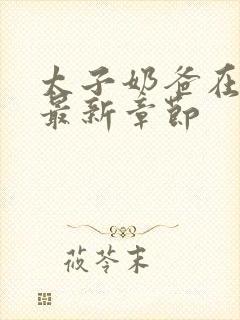 太子奶爸在
最新章节
莜苓末